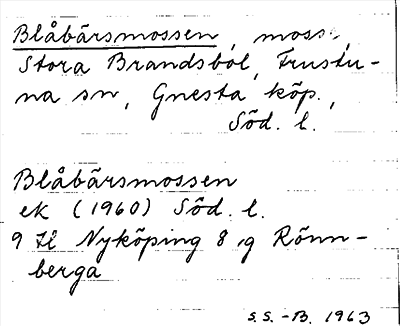 Blåbärsmossen, mosse,
Stora Brandsbol, Frustu-
na sn, Gnesta köp.,
Söd. l.
Blåbärsmossen
ek (1960) Söd. l.
9 H Nyköping 8 g Rönn-
berga
S.S.-B. 1963